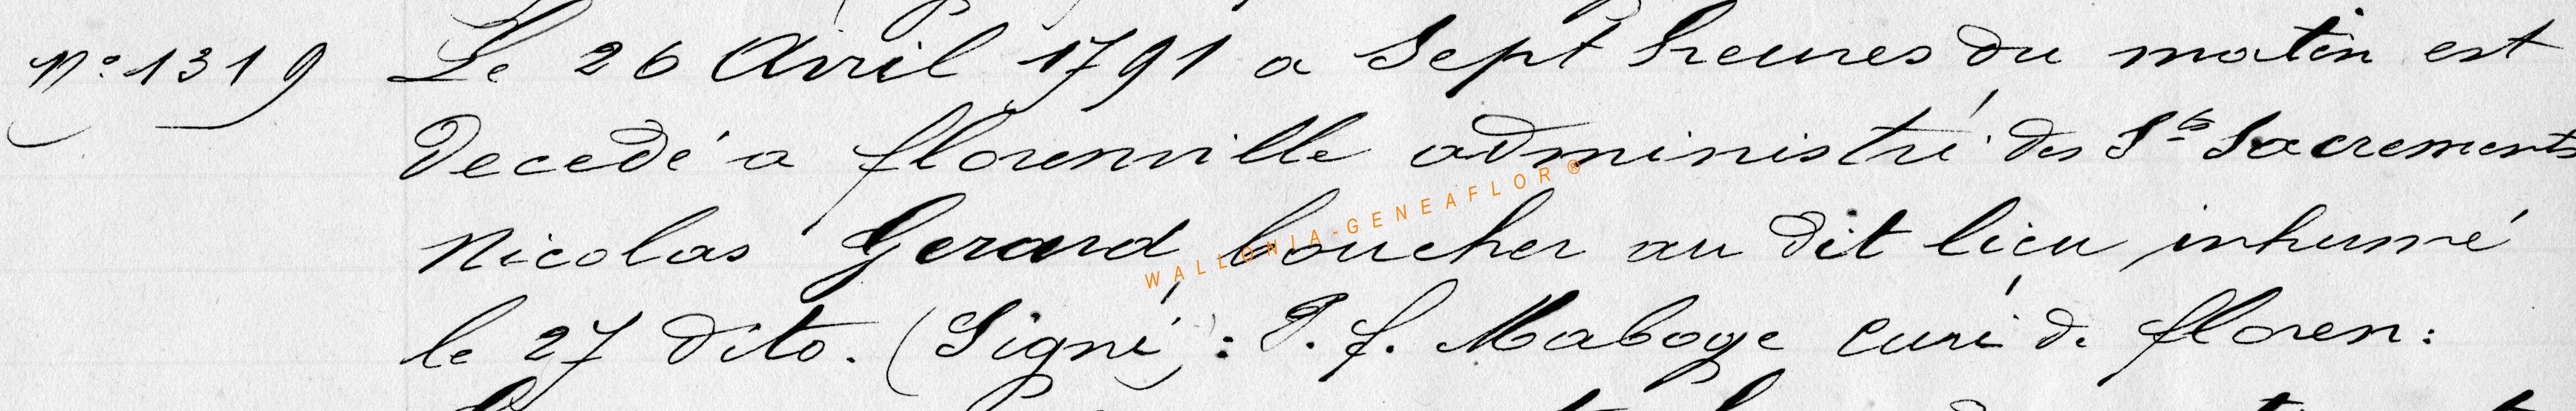 N° 1319 Le 26 Avril 1791 a sept heures du matin est
Decedé a florenville administré des Sts Sacrements
Nicolas Gerard boucher au dit lieu inhumé
le 27 dito. (Signé): P. f. Maboge curé de floren:
WALLONIA-GENEAFLOR®